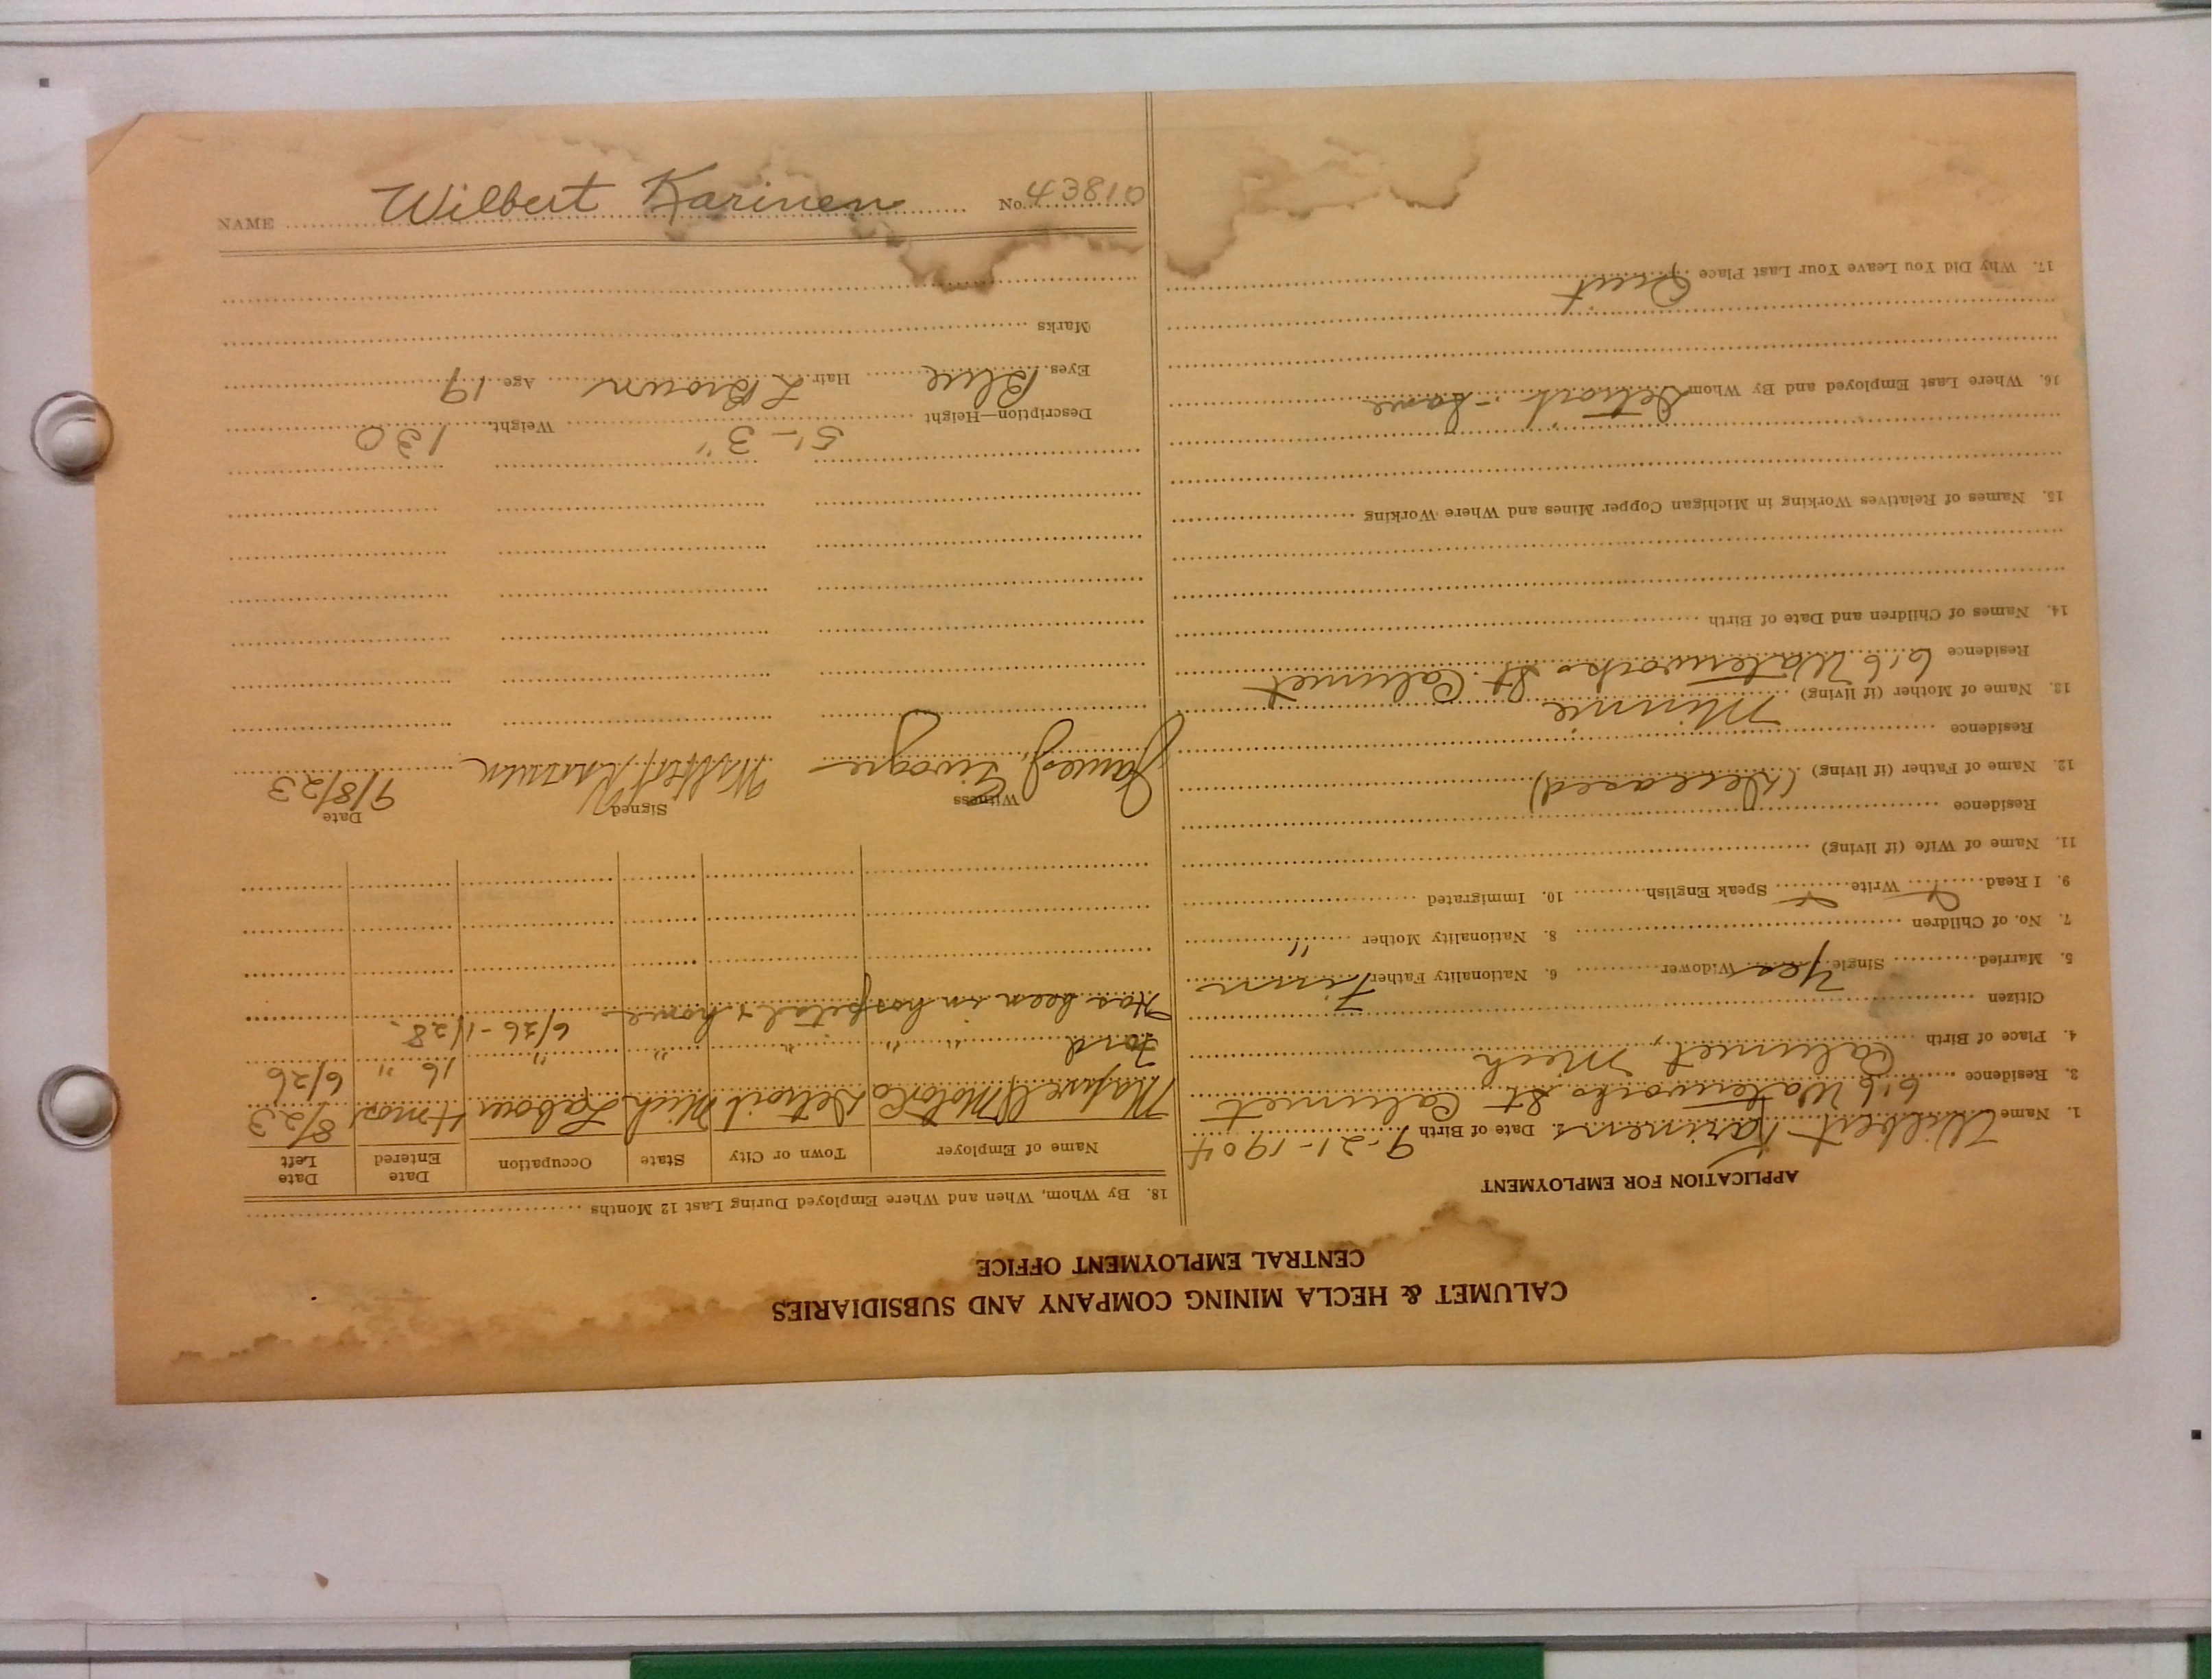 CALUMET & HECLA MINING COMPANY AND SUBSIDIARIES
CENTRAL EMPLOYMENT OFFICE
APPLICATION FOR EMPLOYMENT
1. Name Wilbert Karinen 2. Date of Birth 9-21-1904
3. Residence 616 Waterworks St Calumet
4. Place of Birth Calumet, Mich
Citizen
5. Married Single Yes Widower 6. Nationality Father Finn
7. No. of Children 8. Nationality Mother "
9. I Read Write Speak English 10. Immigrated
11. Name of Wife (if living)
Residence
12. Name of Father (if living) (Deceased)
Residence
13. Name of Mother (if living) Minnie
Residence 616 Waterworks St. Calumet
14. Names of Children and Date of Birth
15. Names of Relatives Working in Michigan Copper Mines and Where Working
16. Where Last Employed and By Whom Detroit, - Same
17. Why Did You Leave Your Last Place Quit
18. By Whom, When and Where Employed During Last 12 Months
Name of Employer Town or City State Occupation Date Entered Date Left
Maxwell Motor Co Detroit Mich Labour 4 mos 8/23
Ford " " " " 16 " 6/26
Has been in hospital & home 6/26 - 1/28.
Witness Signed Date
James J. Wilbert Karinen 9/8/23
Description—Height 5'-3" Weight 130
Eyes Blue Hair L Brown Age 19
Marks
NAME Wilbert Karinen No. 43810